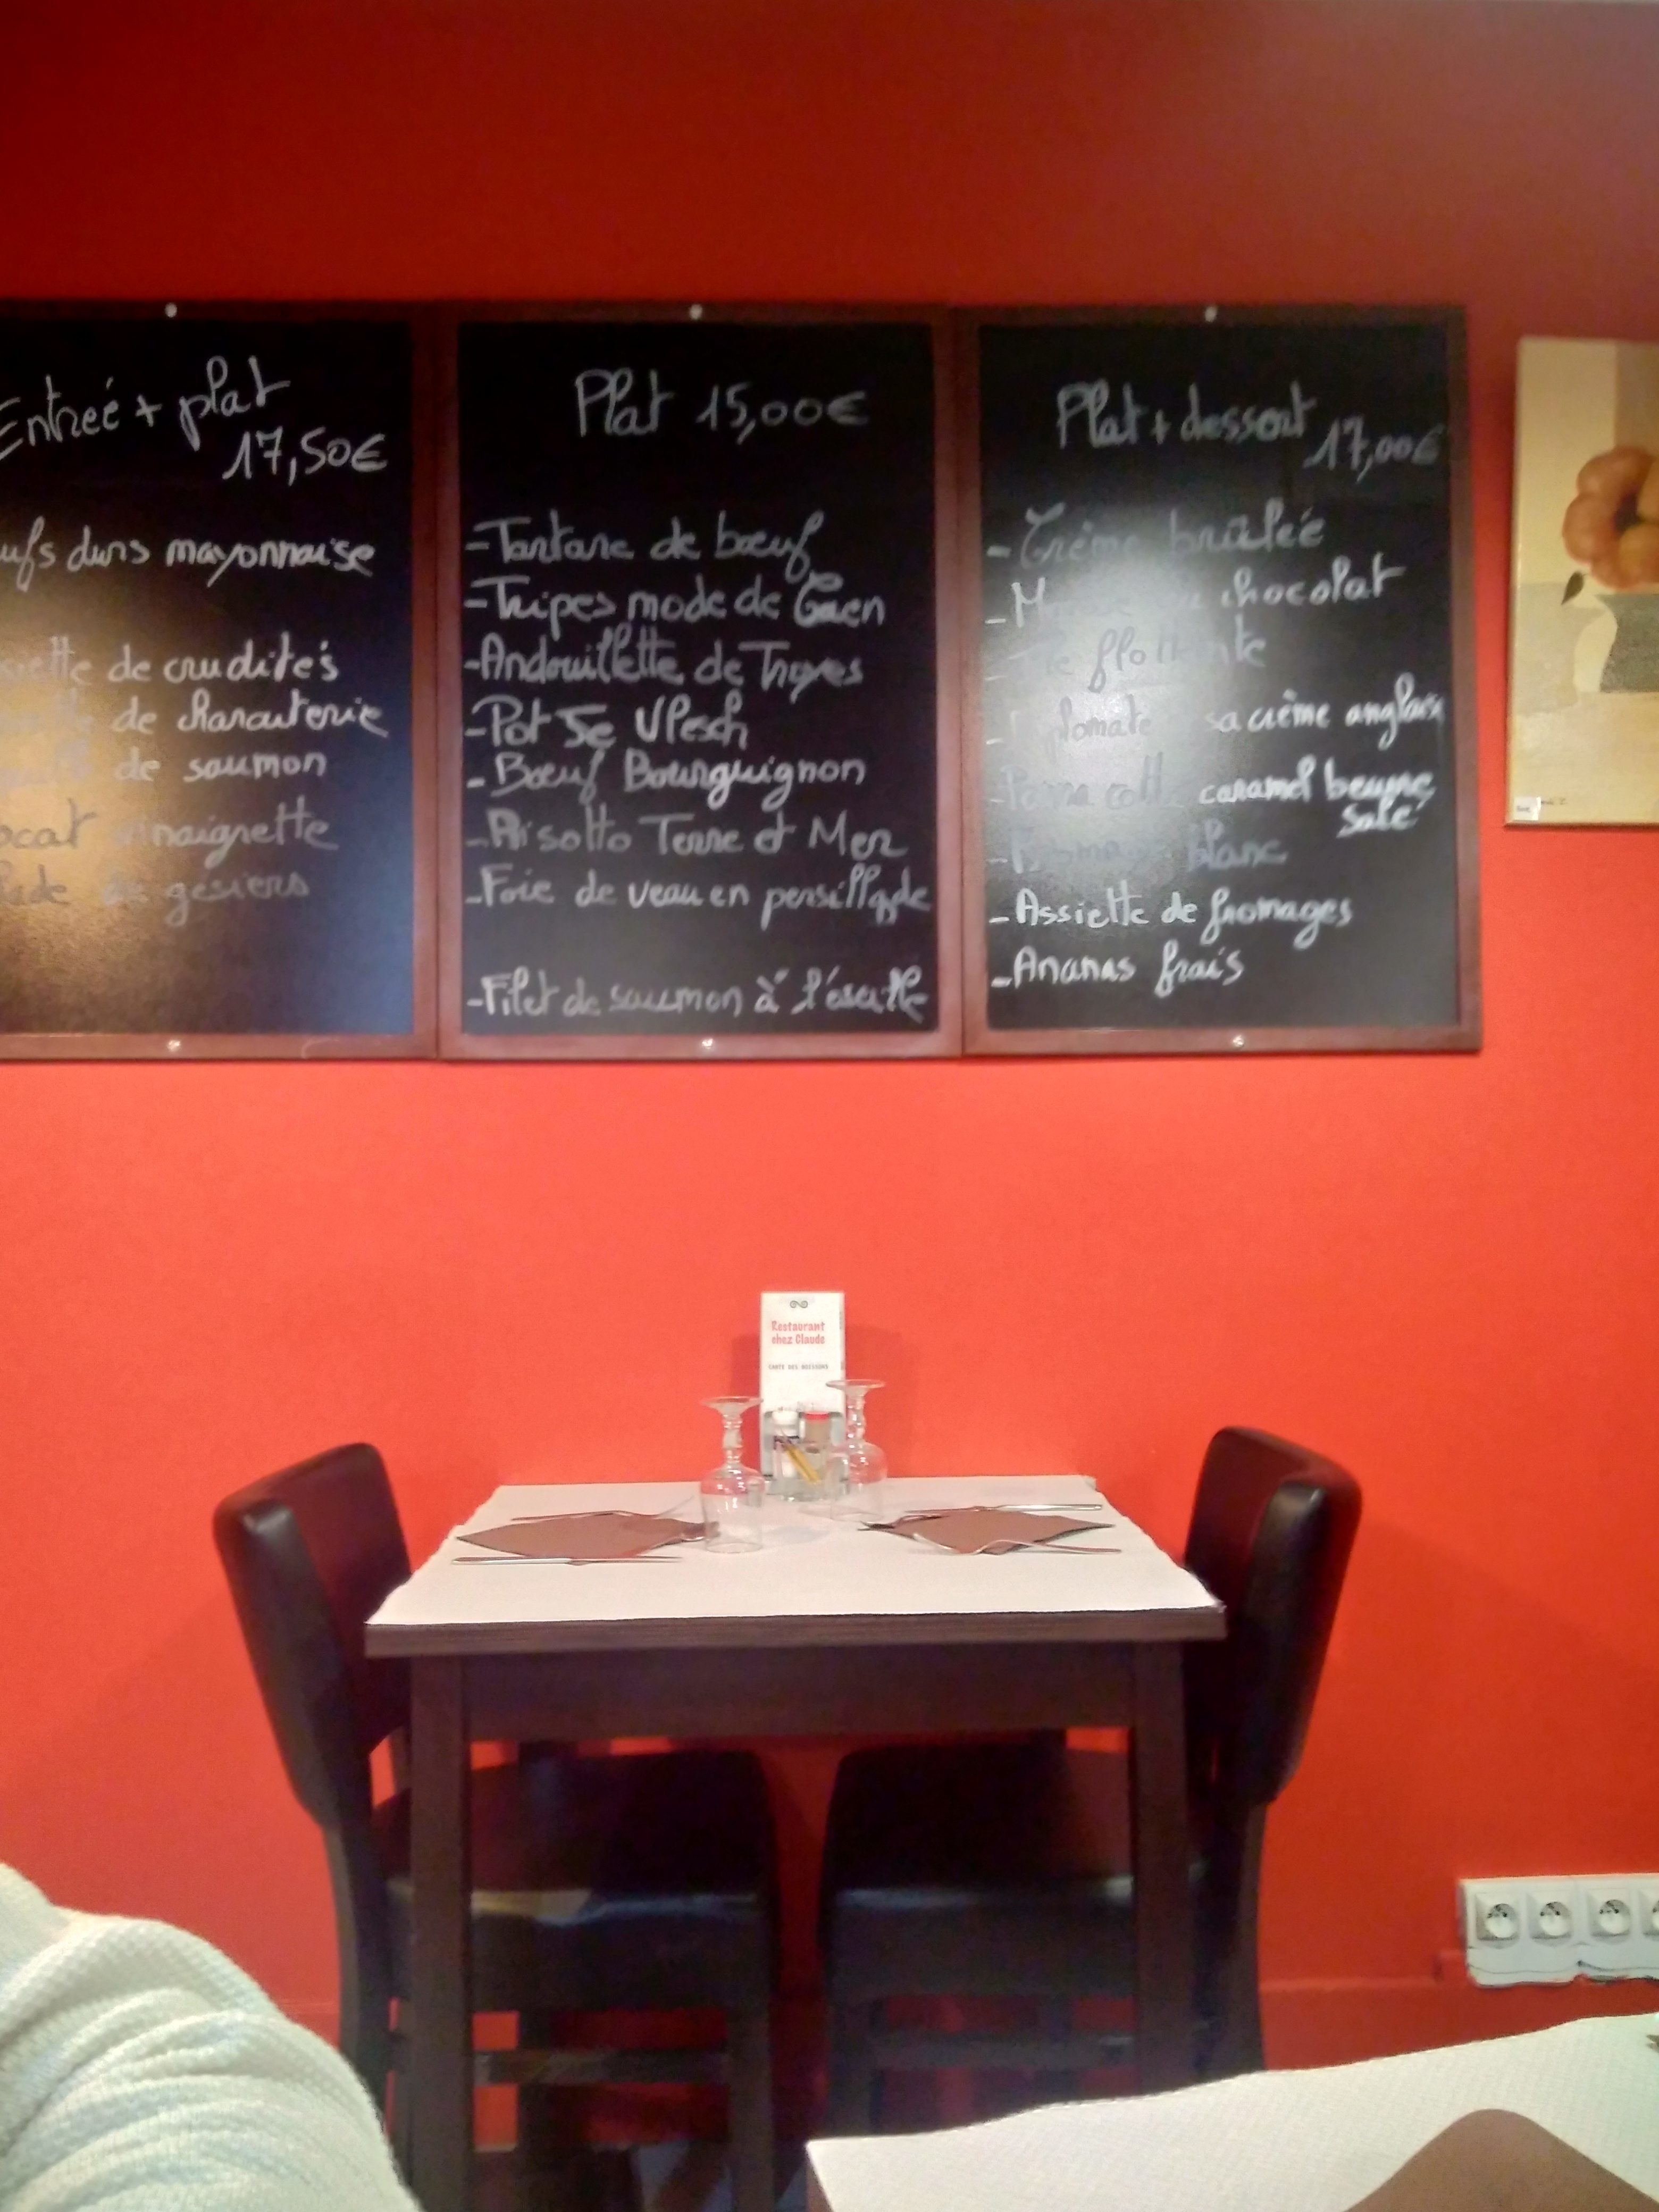 Entreé + plat
17,50€
ufs durs mayonnaise
de crudités
de charcuterie
de saumon
ocat vinaigrette
gésiers
Plat 15,00€
-Tartare de bœuf
-Tripes mode de Caen
-Andouillette de Troyes
-Pot Je Vlesch
-Bœuf Bourguignon
-Risotto Terre et Mer
-Foie de veau en persillade
-Filet de saumon à l'oseille
Plat + dessert
17,00€
-Crème brûlée
chocolat
flottante
sa crème anglaise
caramel beurre
salé
blanc
-Assiette de fromages
-Ananas frais
Restaurant
chez Claude
CARTE DES BOISSONS